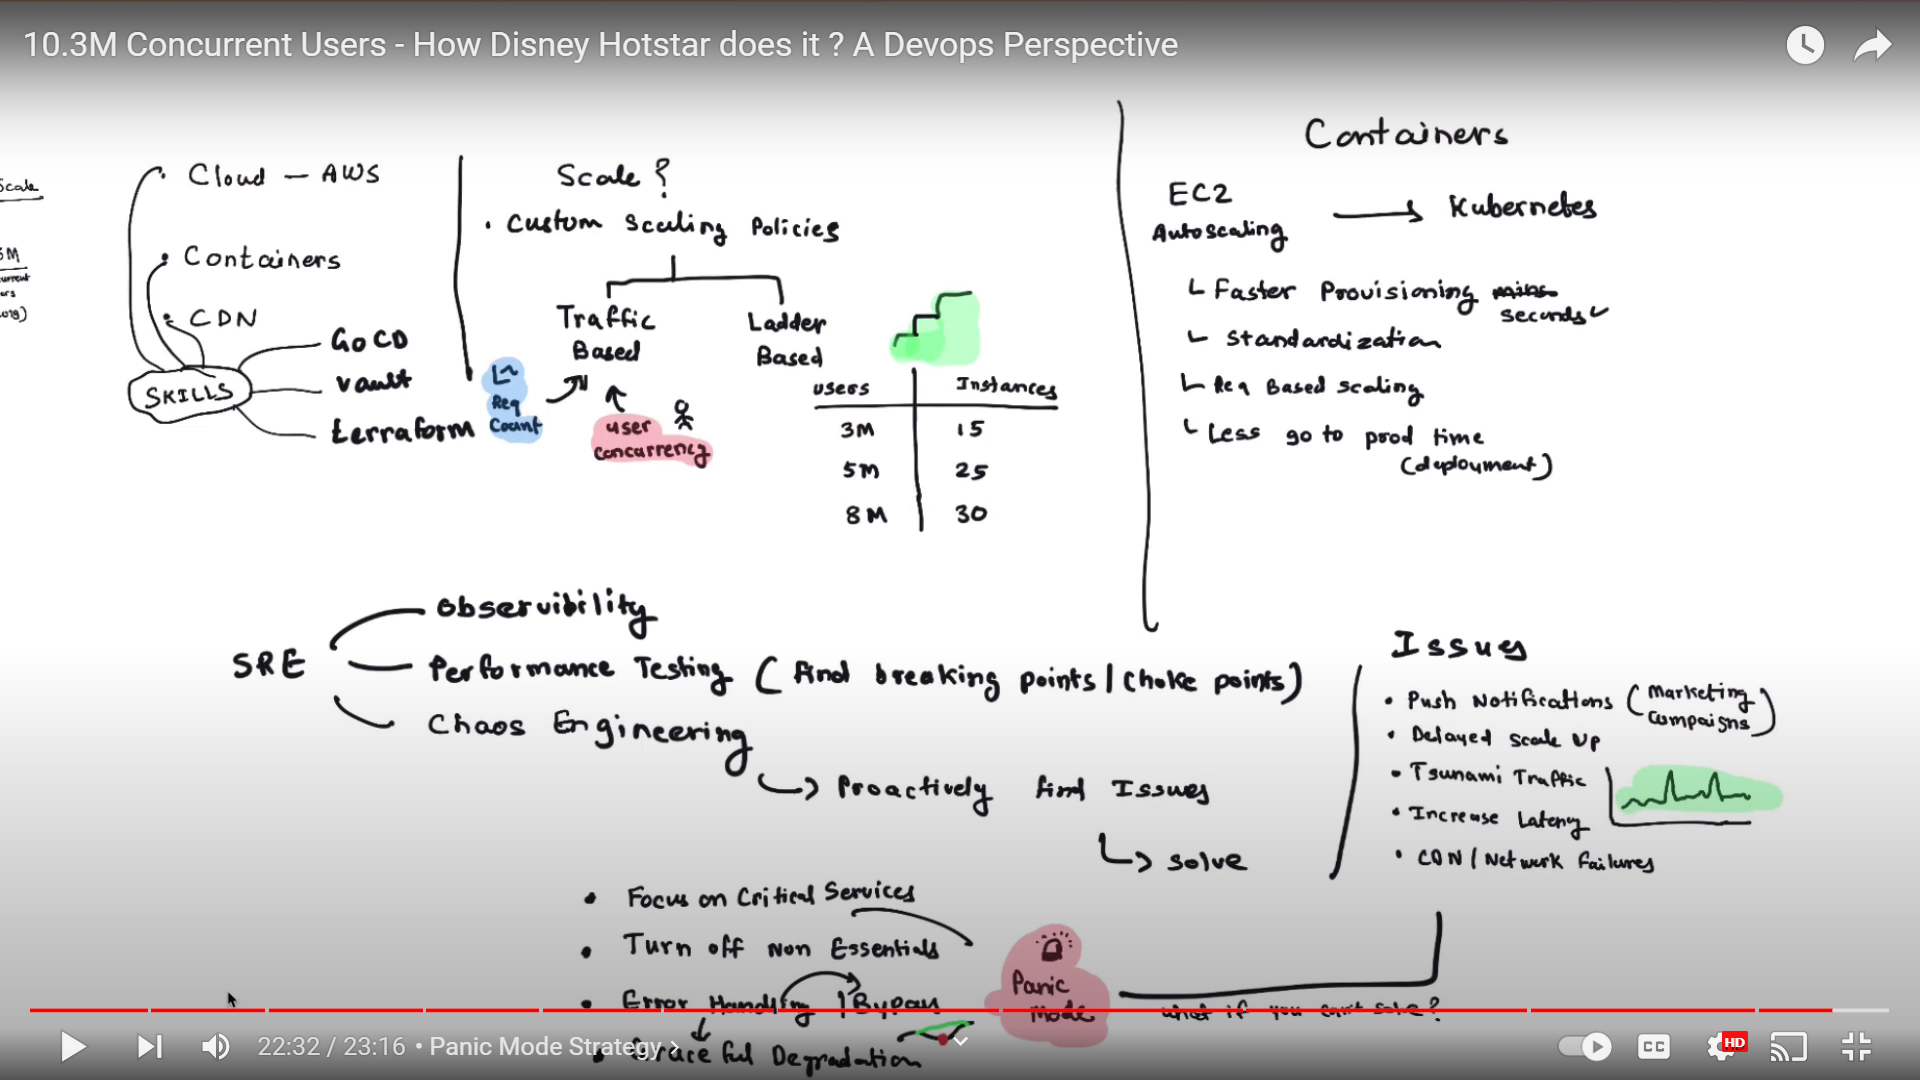 10.3M Concurrent Users - How Disney Hotstar does it ? A Devops Perspective
Scale
Cloud — AWS
Containers
CDN
SKILLS
GoCD
Vault
terraform
Scale ?
Custom Scaling Policies
Traffic
Based
Ladder
Based
Req
Count
user
concurrency
users Instances
3M 15
5M 25
8M 30
Containers
EC2
Autoscaling
Kubernetes
Faster Provisioning mins
seconds
Standardization
Req Based scaling
Less go to prod time
(deployment)
SRE
Observibility
Performance Testing ( find breaking points / choke points)
Chaos Engineering
Proactively find Issues
solve
Issues
Push Notifications (Marketing
Campaigns)
Delayed Scale Up
Tsunami Traffic
Increase Latency
CDN / Network Failures
Focus on Critical Services
Turn off Non Essentials
Error Handling / Bypass
Graceful Degradation
Panic
Mode
What if you can't solve ?
22:32 / 23:16 • Panic Mode Strategy
CC
HD